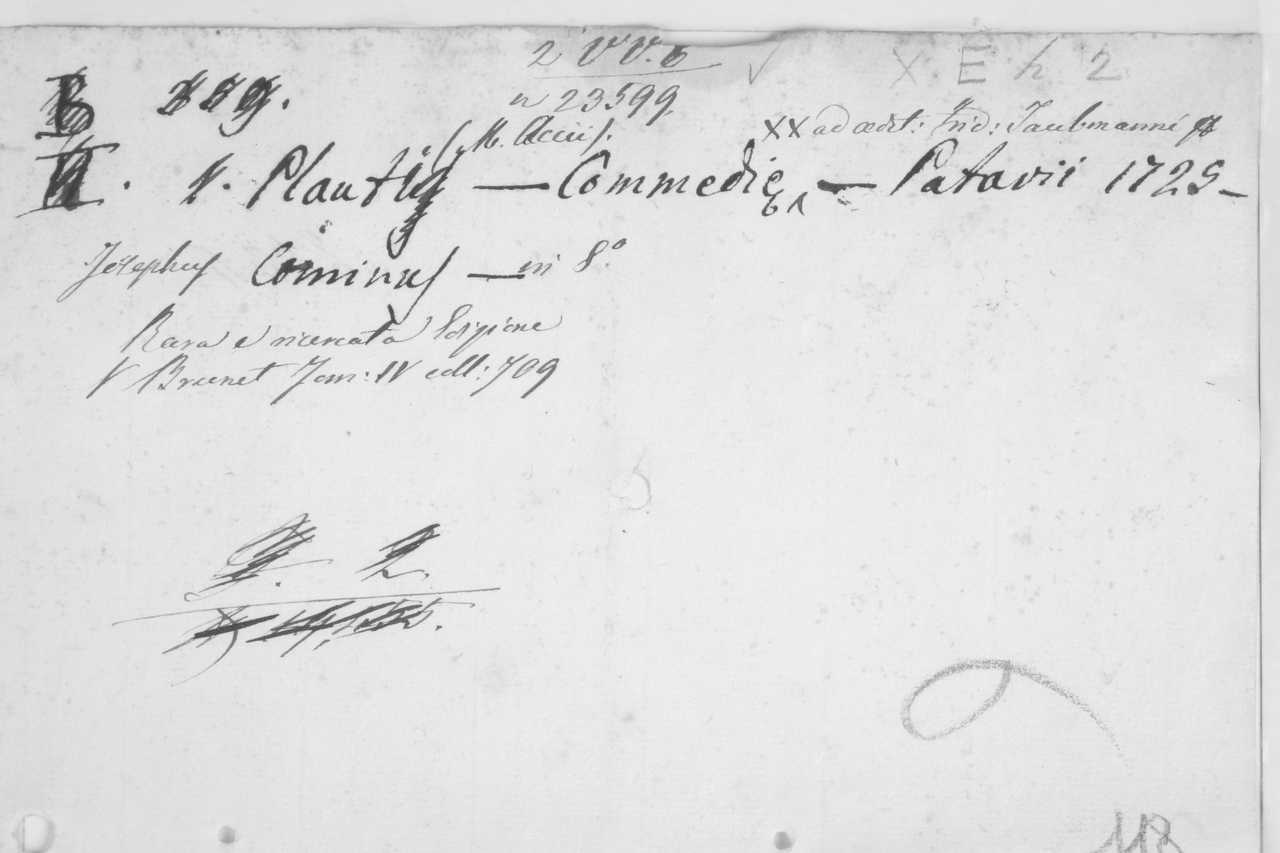 2 VV. 6
X. E. h. 2
n 23599.
B 889.
(M. Accii).
XX ad ædit: Frid: Taubmanni
1. Plautus — Commedię — Patavii 1725 —
Josephus Cominus — in 8.º
Rara e ricercata Edizione
V Brunet Tom: IV coll: 709
2.